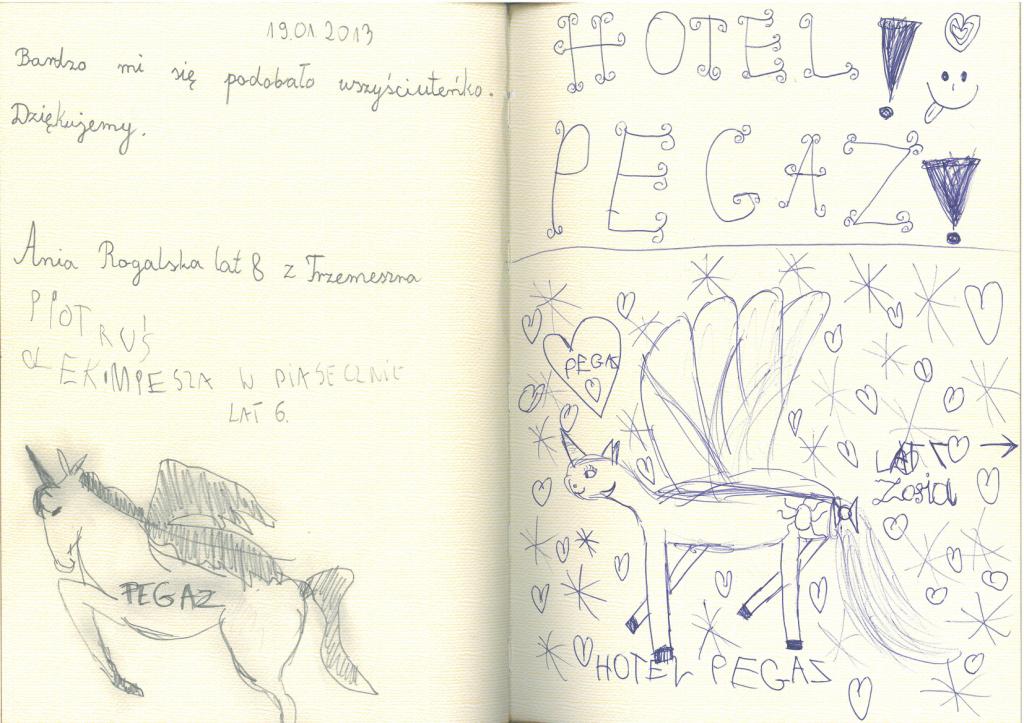 19.01 2013
Bardzo mi się podobało wszyściuteńko.
Dziękujemy.
Ania Rogalska lat 8 z Trzemeszna
PIOTRUŚ
W PIASECZNIE
LAT 6.
PEGAZ
HOTEL!
PEGAZ!
PEGAZ
LAT 7
Zosia
HOTEL PEGAZ